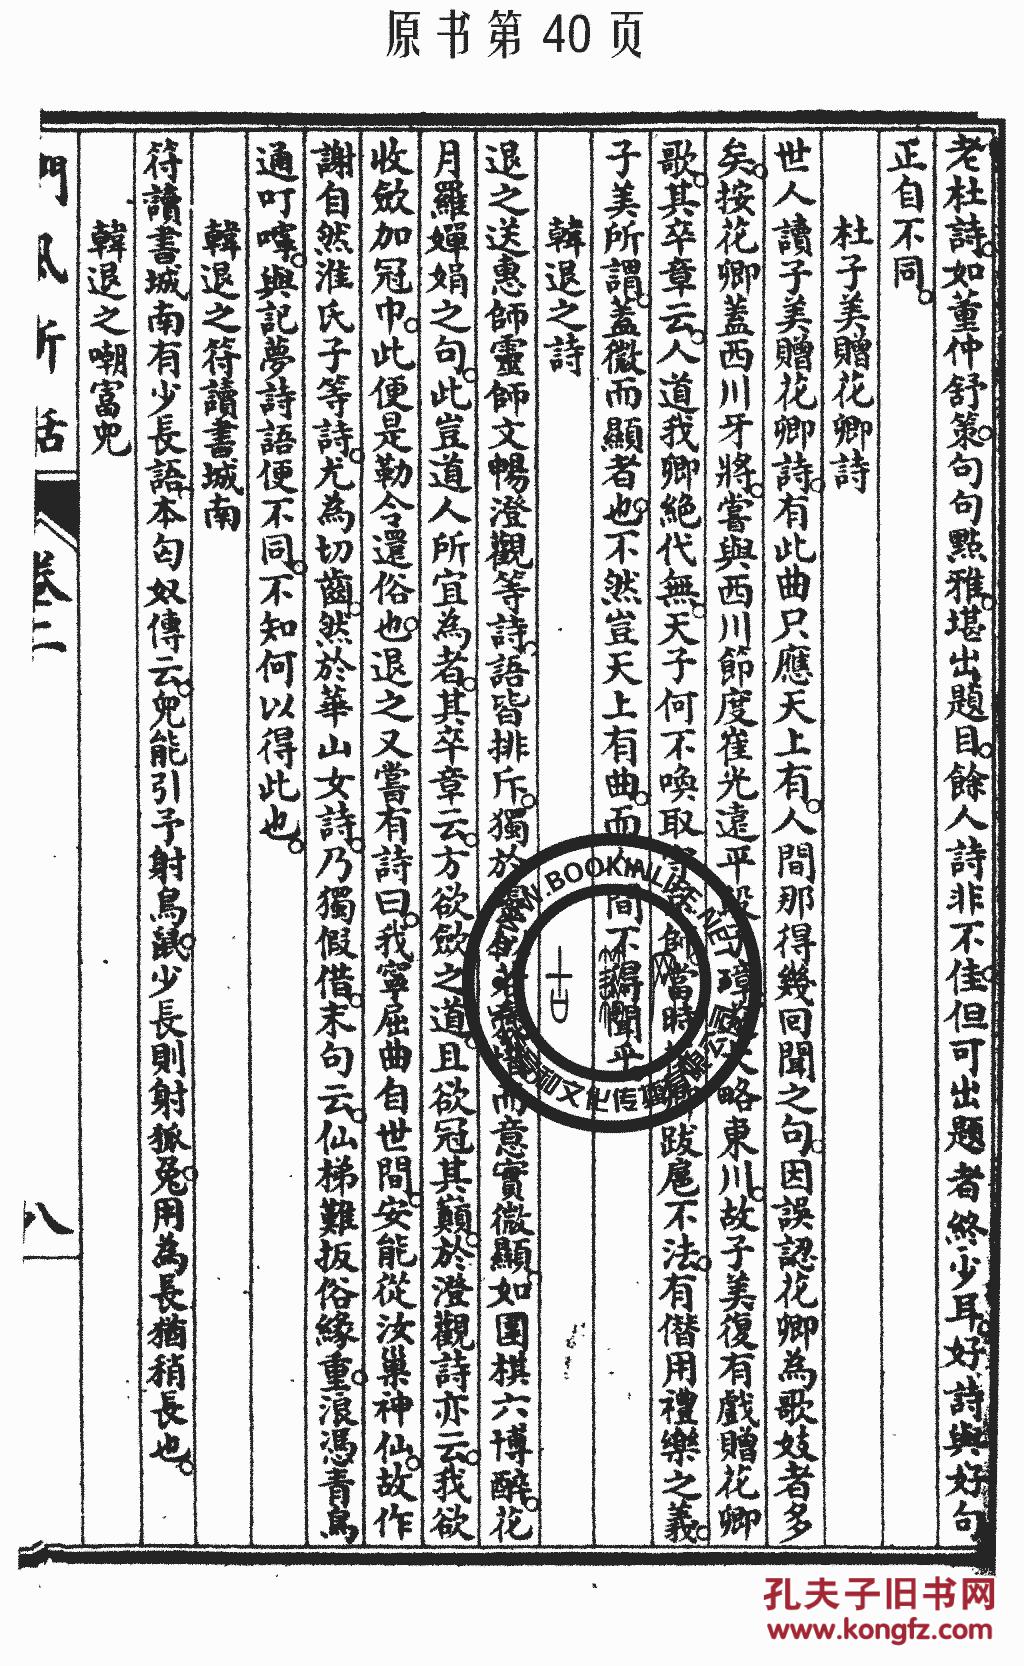 原书第 40 页
老杜詩如董仲舒策句句點雅堪出題目餘人詩非不佳但可出題者終少耳好詩與好句
正自不同
杜子美贈花卿詩
世人讀子美贈花卿詩有此曲只應天上有人間那得幾回聞之句因誤認花卿為歌妓者多
矣按花卿蓋西川牙將嘗與西川節度崔光遠平段子璋遂大略東川故子美復有戲贈花卿
歌其卒章云人道我卿絕代無天子何不喚取守京師當時跋扈不法有僭用禮樂之義
子美所謂蓋微而顯者也不然豈天上有曲而人間不得聞乎
韓退之詩
退之送惠師靈師文暢澄觀等詩語皆排斥獨於而意實微顯如圍棋六博醉花
月羅嬋娟之句此豈道人所宜為者其卒章云方欲斂之道且欲冠其巔於澄觀詩亦云我欲
收斂加冠巾此便是勒令還俗也退之又嘗有詩曰我寧屈曲自世間安能從汝巢神仙故作
謝自然淮氏子等詩尤為切齒然於華山女詩乃獨假借末句云仙梯難扳俗緣重浪憑青鳥
通叮嚀與記夢詩語便不同不知何以得此也
韓退之符讀書城南
符讀書城南有少長語本匈奴傳云兒能引予射鳥鼠少長則射狐兔用為長猶稍長也
韓退之嘲富兒
捫風新話
卷二
八
WWW.BOOKYALIPE.NET
文化传
孔夫子旧书网
www.kongfz.com